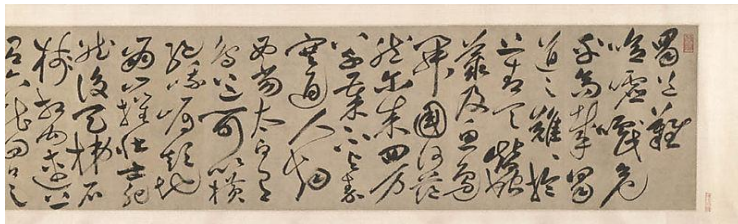 蜀道難
噫吁嚱危
乎高哉蜀
道之難〻於
上青天蠶
叢及魚鳧
開國何茫
然爾來四万
八千歲不與秦
塞通人烟
西當太白有
鳥道可以橫
絕峨嵋巔地
崩山摧壯士死
然後天梯石
棧相鉤連上
有六龍回日之